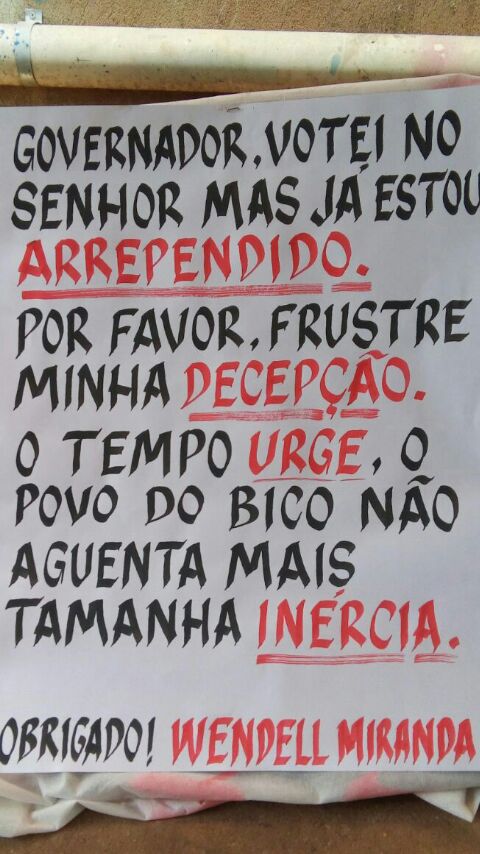 GOVERNADOR, VOTEI NO
SENHOR MAS JÁ ESTOU
ARREPENDIDO.
POR FAVOR, FRUSTRE
MINHA DECEPÇÃO.
O TEMPO URGE, O
POVO DO BICO NÃO
AGUENTA MAIS
TAMANHA INÉRCIA.
OBRIGADO! WENDELL MIRANDA